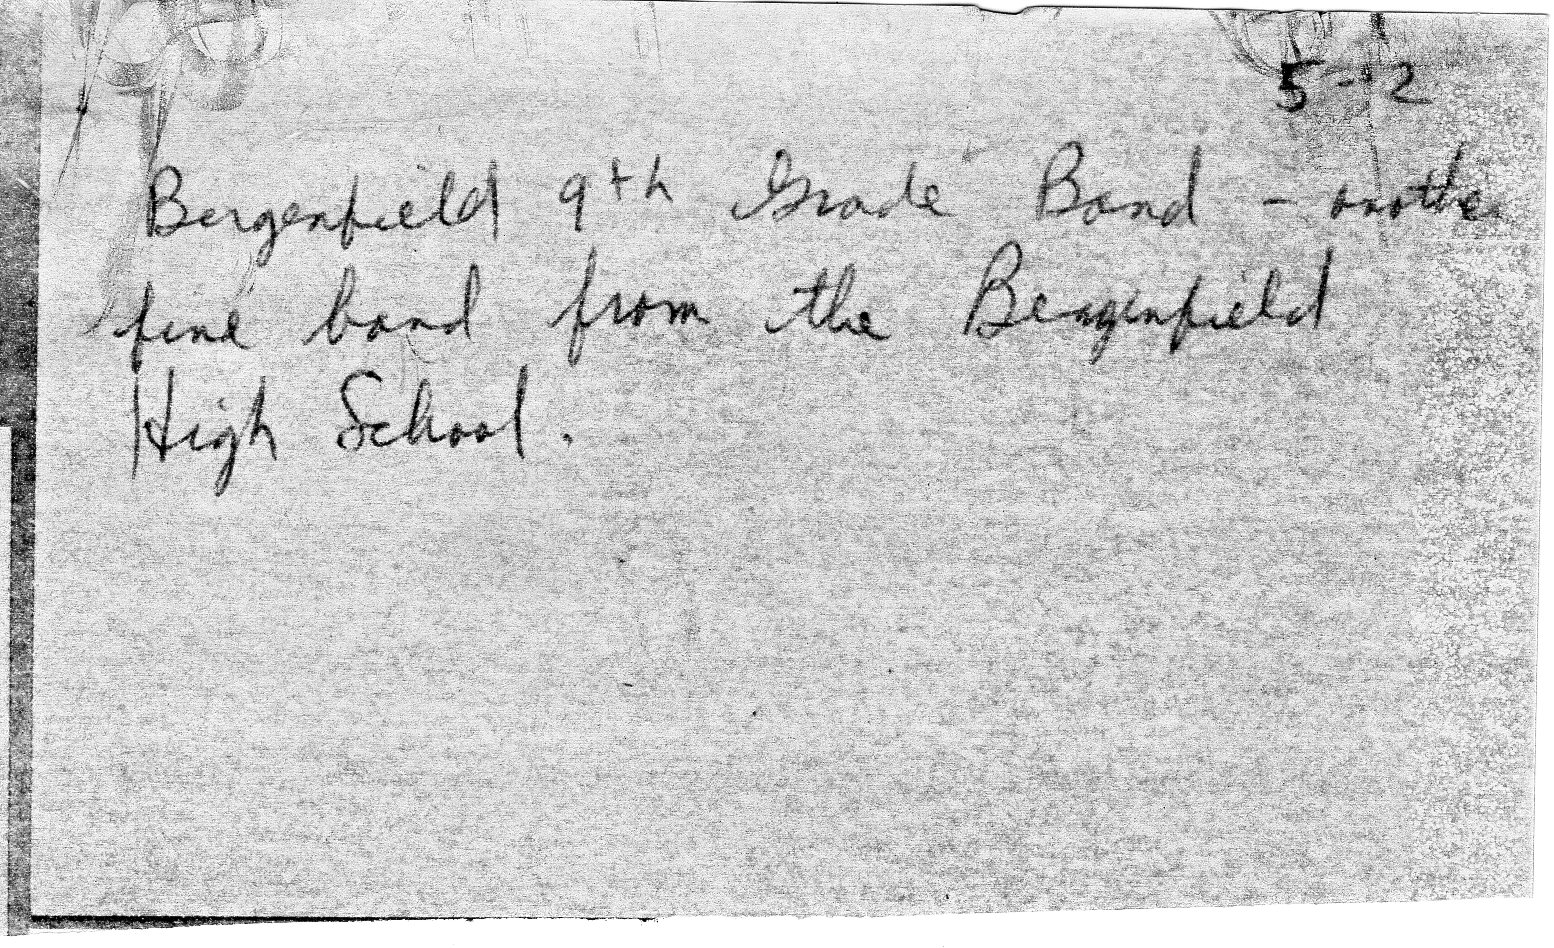 5-2
Bergenfield 9th Grade Band - another
fine band from the Bergenfield
High School.